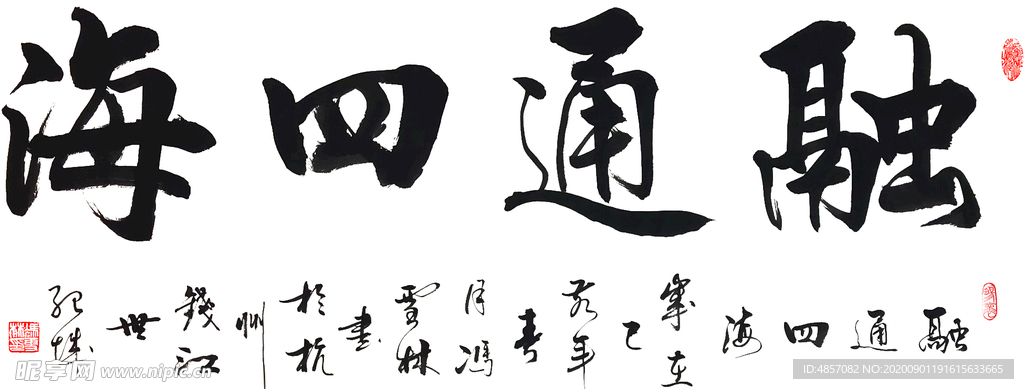 融通四海
融通四海歲在己亥年春月馮林書於杭州錢江世紀城
昵享网 www.nipic.cn
ID:4857082 NO:20200901191615633665